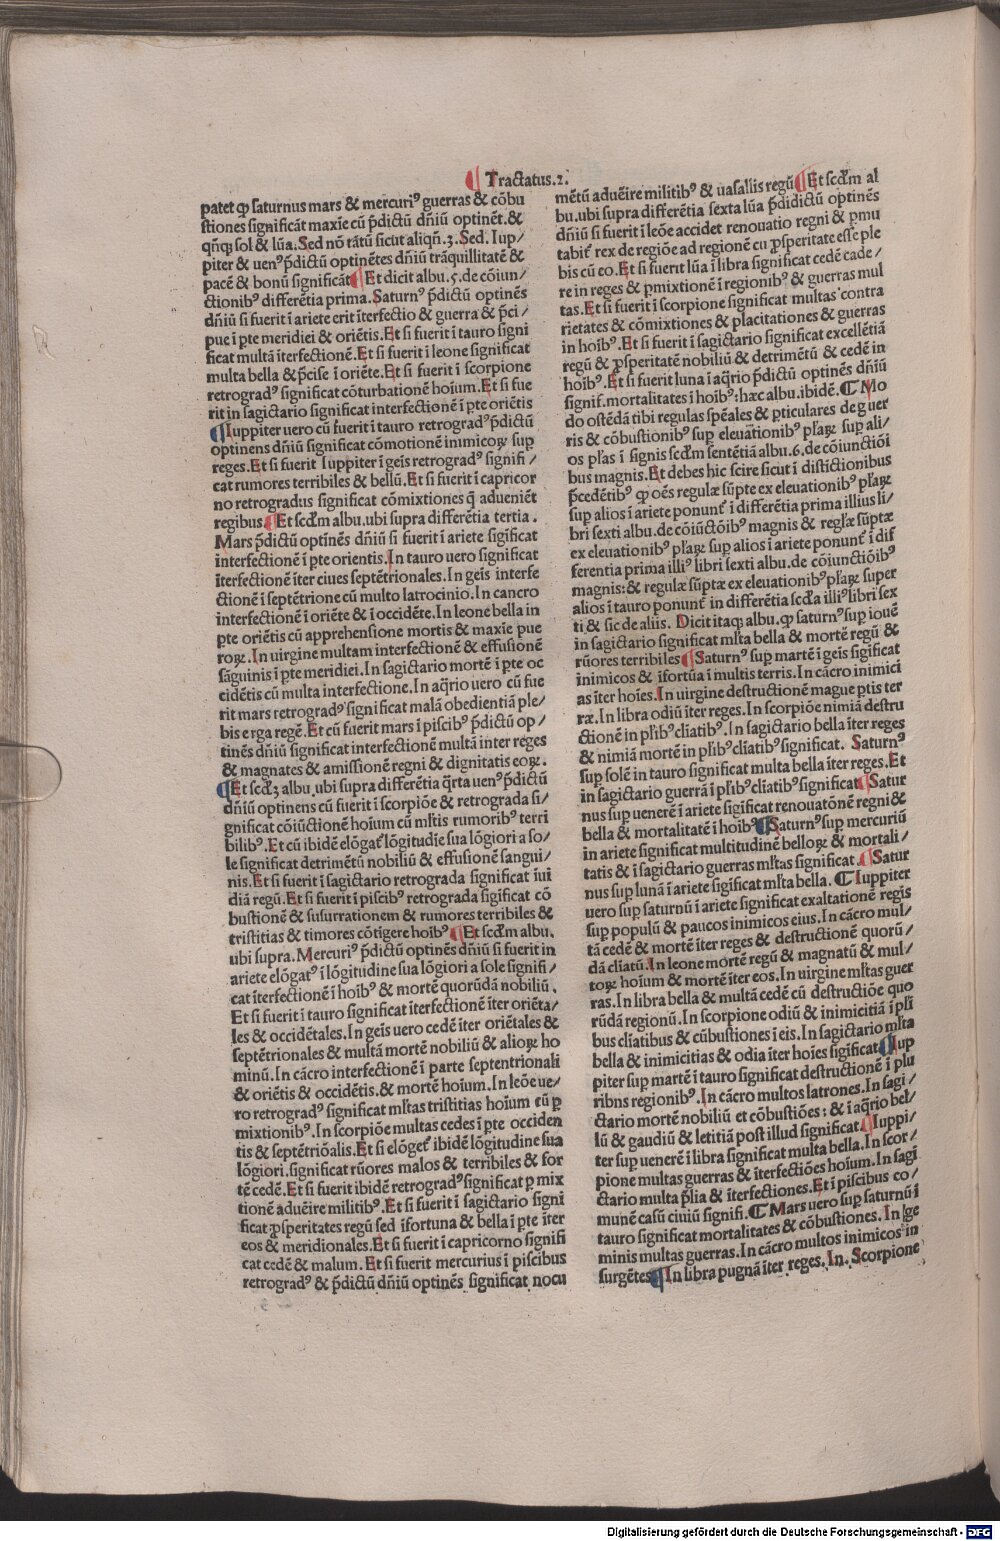 ¶ Tractatus.2.
patet ꝙ saturnus mars & mercuriꝰ guerras & cōbu
stiones significāt maxīe cū p̄dictū dn̄iū optinēt.&
qn̄qꝫ sol & lūa. Sed nō tātū sicut aliqn̄.3. Sed. Iup/
piter & uenꝰ p̄dictū optinētes dn̄iū trāquillitatē &
pacē & bonū significāt ¶ Et dicit albu.5.de cōiun/
ctionibꝰ differētia prima. Saturnꝰ p̄dictū optinēs
dn̄iū si fuerit ī ariete erit īterfectio & guerra & p̄ci/
pue ī pte meridiei & oriētis. Et si fuerit ī tauro signi
ficat multā īterfectionē. Et si fuerit ī leone significat
multa bella & p̄cise ī oriēte. Et si fuerit ī scorpione
retrogradꝰ significat cōturbationē hoium. Et si fue
rit in sagictario significat interfectionē ī pte oriētis
¶ Iuppiter uero cū fuerit ī tauro retrogradꝰ p̄dictū
optinens dn̄iū significat cōmotionē inimicoꝝ sup
reges. Et si fuerit Iuppiter ī geīs retrogradꝰ signifi/
cat rumores terribiles & bellū. Et si fuerit ī capricor
no retrogradus significat cōmixtiones q̄ adueniēt
regibus. ¶ Et scd̄m albu.ubi supra differētia tertia.
Mars p̄dictū optinēs dn̄iū si fuerit ī ariete sigificat
interfectionē ī pte orientis. In tauro uero significat
īterfectionē īter ciues septētrionales. In geīs interfe
ctionē ī septētrione cū multo latrocinio. In cancro
interfectionē ī oriēte & ī occidēte. In leone bella in
pte oriētis cū apprehensione mortis & maxīe pue
roꝝ. In uirgine multam interfectionē & effusionē
sāguinis ī pte meridiei. In sagictario mortē ī pte oc
cidētis cū multa interfectione. In aq̄rio uero cū fue
rit mars retrogradꝰ significat malā obedientiā ple/
bis erga regē. Et cū fuerit mars ī piscibꝰ p̄dictū op/
tinēs dn̄iū significat interfectionē multā inter reges
& magnates & amissionē regni & dignitatis eoꝝ.
¶ Et scd̄ꝫ albu,ubi supra differētia q̄rta uenꝰ p̄dictū
dn̄iū optinens cū fuerit ī scorpiōe & retrograda si/
gnificat cōiūctionē hoium cū ml̄tis rumoribꝰ terri
bilibꝰ. Et cū ibidē elōgat̄ lōgitudīe sua lōgiori a so/
le significat detrimētū nobiliū & effusionē sangui/
nis. Et si fuerit ī sagictario retrograda significat īui
diā regū. Et si fuerit ī piscibꝰ retrograda sigificat cō
bustionē & susurrationem & rumores terribiles &
tristitias & timores cōtīgere hoibꝰ ¶ Et scd̄m albu.
ubi supra. Mercuriꝰ p̄dictū optinēs dn̄iū si fuerit in
ariete elōgatꝰ ī lōgitudine sua lōgiori a sole signifi/
cat īterfectionē ī hoibꝰ & mortē quorūdā nobiliū.
Et si fuerit ī tauro significat īterfectionē īter oriēta/
les & occidētales. In geīs uero cedē īter oriētales &
septētrionales & multā mortē nobiliū & alioꝝ ho
minū. In cācro interfectionē ī parte septentrionali
& oriētis & occidētis. & mortē hoium. In leōe ue/
ro retrogradꝰ significat ml̄tas tristitias hoium cū ꝑ
mixtionibꝰ. In scorpiōe multas cedes ī pte occiden
tis & septētriōalis. Et si elōget̄ ibidē lōgitudine sua
lōgiori.significat rūores malos & terribiles & for
tē cedē. Et si fuerit ibidē retrogradꝰ significat ꝑ mix
tionē aduēire militibꝰ. Et si fuerit ī sagictario signi
ficat ꝓsperitates regū sed īfortuna & bella ī pte īter
eos & meridionales. Et si fuerit ī capricorno signifi
cat cedē & malum. Et si fuerit mercurius ī piscibus
retrogradꝰ & p̄dictū dn̄iū optinēs significat nocu
mētū aduēire militibꝰ & uasallis regū ¶ Et scd̄m al
bu.ubi supra differētia sexta lūa p̄didictū optinēs
dn̄iū si fuerit ī leōe accidet renouatio regni & ꝑmu
tabit̄ rex de regiōe ad regionē cu ꝓsperitate esse ple
bis cū eo. Et si fuerit lūa ī libra significat cedē cade/
re in reges & ꝑmixtionē ī regionibꝰ & guerras mul
tas. Et si fuerit ī scorpione significat multas contra
rietates & cōmixtiones & placitationes & guerras
in hoibꝰ. Et si fuerit ī sagictario significat excellētiā
regū & ꝓsperitatē nobiliū & detrimētū & cedē in
hoibꝰ. Et si fuerit luna ī aq̄rio p̄dictū optinēs dn̄iū
signif. mortalitates ī hoibꝰ:hæc albu.ibidē. ¶ Mo
do ostēdā tibi regulas spēales & ꝑticulares de guer
ris & cōbustionibꝰ suꝑ eleuātionibꝰ pl̄aꝝ sup ali/
os pl̄as ī signis scd̄m sentētiā albu.6.de cōiunctiōi
bus magnis. Et debes hic scire sicut ī distictionibus
p̄cedētibꝰ ꝙ oēs regulæ sūpte ex eleuationibꝰ pl̄aꝝ
sup alios ī ariete ponunt̄ ī differētia prima illius li/
bri sexti albu.de cōiūctōibꝰ magnis & regl̄æ sūptæ
ex eleuationibꝰ pl̄aꝝ sup alios ī ariete ponunt̄ ī dif
ferentia prima illiꝰ libri sexti albu. de cōiunctiōibꝰ
magnis:& regulæ sūptæ ex eleuationibꝰ pl̄aꝝ super
alios ī tauro ponunt̄ in differētia scd̄a illiꝰ libri sex
ti & sic de aliis. Dicit itaqꝫ albu.ꝙ saturnꝰ sup iouē
in sagictario significat ml̄ta bella & mortē regū &
rūores terribiles ¶ Saturnꝰ sup martē ī geis sigificat
inimicos & īfortūa ī multis terris. In cācro inimici
as īter hoīes. In uirgine destructionē mague ptis ter
ræ. In libra odiū īter reges. In scorpiōe nimiā destru
ctionē in pl̄ibꝰ cl̄iatibꝰ. In sagictario bella īter reges
& nimiā mortē in pl̄ibꝰ cl̄iatibꝰ significat. Saturnꝰ
sup solē in tauro significat multa bella īter reges. Et
in sagictario guerrā ī pl̄ibꝰ cl̄iatibꝰ significat ¶ Satur
nus sup uenerē ī ariete sigificat renouatōnē regni &
bella & mortalitatē ī hoibꝰ ¶ Saturnꝰ sup mercuriū
in ariete significat multitudinē belloꝝ & mortali/
tatis & ī sagictario guerras ml̄tas significat. ¶ Satur
nus sup lunā ī ariete sigificat ml̄ta bella. ¶ Iuppiter
uero sup saturnū ī ariete significat exaltationē regis
sup populū & paucos inimicos eius. In cācro mul/
tā cedē & mortē īter reges & destructionē quorū/
dā cl̄iatū. In leone mortē regū & magnatū & mul/
toꝝ hoium & mortē īter eos. In uirgine ml̄tas guer
ras. In libra bella & multā cedē cū destructiōe quo
rūdā regionū. In scorpione odiū & inimicitiā ī pl̄i
bus cl̄iatibus & cūbustiones ī eis. In sagictario ml̄ta
bella & inimicitias & odia īter hoīes sigificat ¶ Iup
piter sup martē ī tauro significat destructionē ī plu
ribns regionibꝰ. In cācro multos latrones. In sagi/
ctario mortē nobiliū et cōbustiōes: & ī aq̄rio bel/
lū & gaudiū & letitiā post illud significat. ¶ Iuppi/
ter sup uenerē ī libra significat multa bella. In scor/
pione multas guerras & īterfectiōes hoium. In sagi
ctario multa p̄lia & īterfectiones. Et ī piscibus co/
munē casū ciuiū signifi. ¶ Mars uero sup saturnū ī
tauro significat mortalitates & cōbustiones. In ge
minis multas guerras. In cācro multos inimicos in
surgētes ¶ In libra pugnā īter reges. In. Scorpione
Digitalisierung gefördert durch die Deutsche Forschungsgemeinschaft - DFG